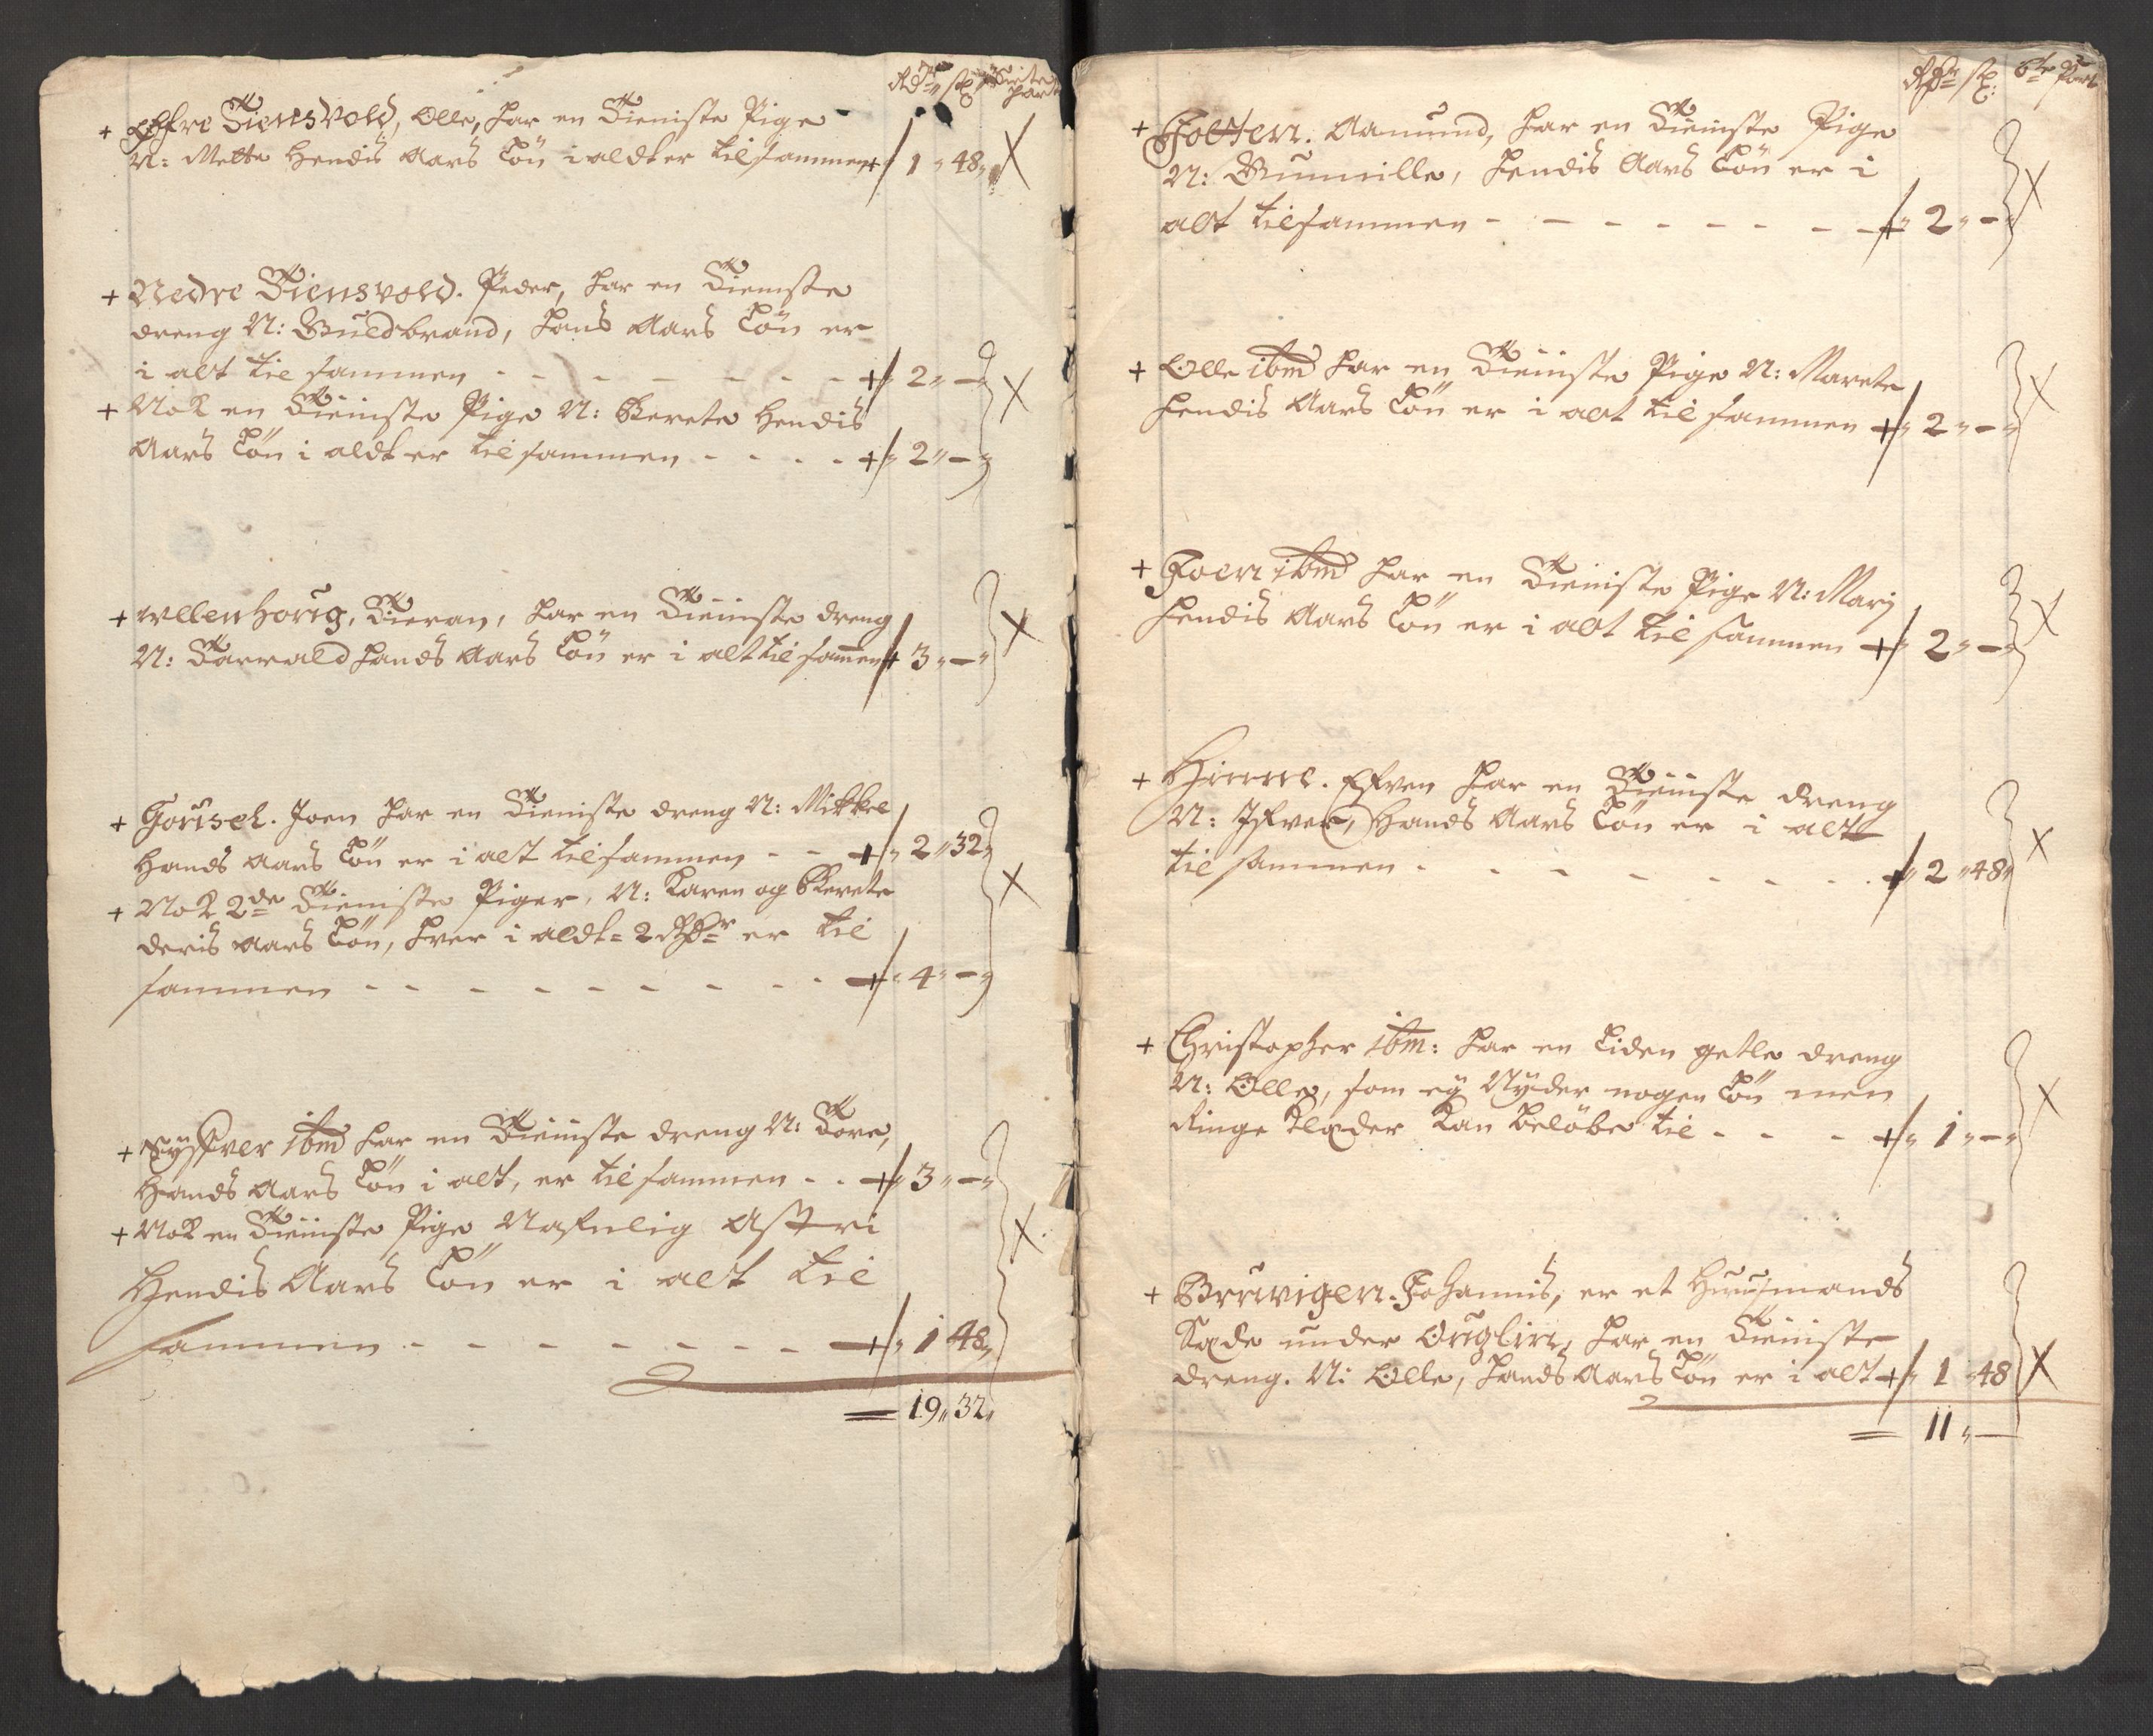 Rdr sk
+ Øfre Tiensvold, Olle, har en Tieniste Pige
N: Mette Hendis Aars Lön i aldt er tilsammen + 1 „ 48 „ X
+ Nedre Tiensvold. Peder, har en Tieniste
dreng N: Guldbrand, hans Aars Lön er
i alt til sammen - - - - - - - + „ 2 „ — „
+ Nok en Tieniste Pige N: Berete Hendis X
Aars Lön i aldt er tilsammen - - - - + „ 2 „ — „
+ Wllenhoug, Tieran, har en Tieniste dreng X
N: Tarrald hands Aars Lön er i alt til sammen + 3 „ — „
+ Gorsel. Joen har en Tieniste dreng N: Mikkel
Hands Aars Lön er i alt tilsammen - - + „ 2 „ 32 „
+ Nok 2de Tieniste Piger, N: Karen og Berete X
deris Aars Lön, hver i aldt = 2 Rdr er til
sammen - - - - - - - - - + „ 4 „ — „
+ Syfver ibm har en Tieniste dreng N: Tore,
Hands Aars Lön i alt, er til sammen - - + „ 3 „ — „
+ Nok en Tieniste Pige Nafnlig Astri X
Hendis Aars Lön er i alt til
sammen - - - - - - - - + „ 1 48 „
= 19 „ 32 „
Rdr sk: 6te Part
+ Holten. Aamund, har en Tieniste Pige
N: Gunnille, hendis Aars Lön er i X
alt tilsammen - - - - - - - - + „ 2 „ — „
+ Olle ibm har en Tieniste Pige N: Marete X
hendis Aars Lön er i alt til sammen + „ 2 „ — „
+ Joen ibm har en Tieniste Pige N: Marj X
hendis Aars Lön er i alt til sammen + „ 2 „ — „
+ Himme. Efven har en Tieniste dreng
N: Ifver, Hands Aars Lön er i alt X
til sammen - - - - - - - - + „ 2 „ 48 „
+ Christopher ibm: har en Liden getle dreng
N: Olle, som ey Nyder nogen Lön men X
Ringe Klæder Kan beløbe til - - - + „ 1 „ — „
+ Bruvigen. Johannis, er et Huusmands
Sæde under Ouglin, har en Tieniste
dreng. N: Olle, hands Aars Lön er i alt + „ 1 „ 48 X
= 11 „ —